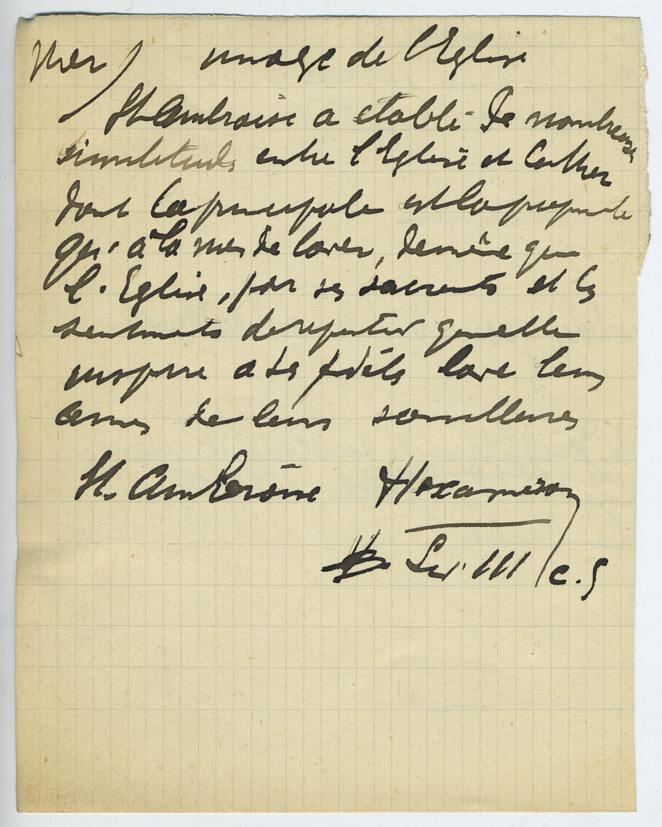 Mer) image de l'Eglise
St Ambroise a établi de nombreuses
similitudes entre l'Eglise et la Mer
dont la principale est la propriété
qu'a la mer de laver, de même que
l'Eglise, par ses sacrements et les
sentiments de repentir qu'elle
inspire à ses fidèles lave leurs
âmes de leurs souillures
St. Ambroise Hexaméron
Liv. III c. 5